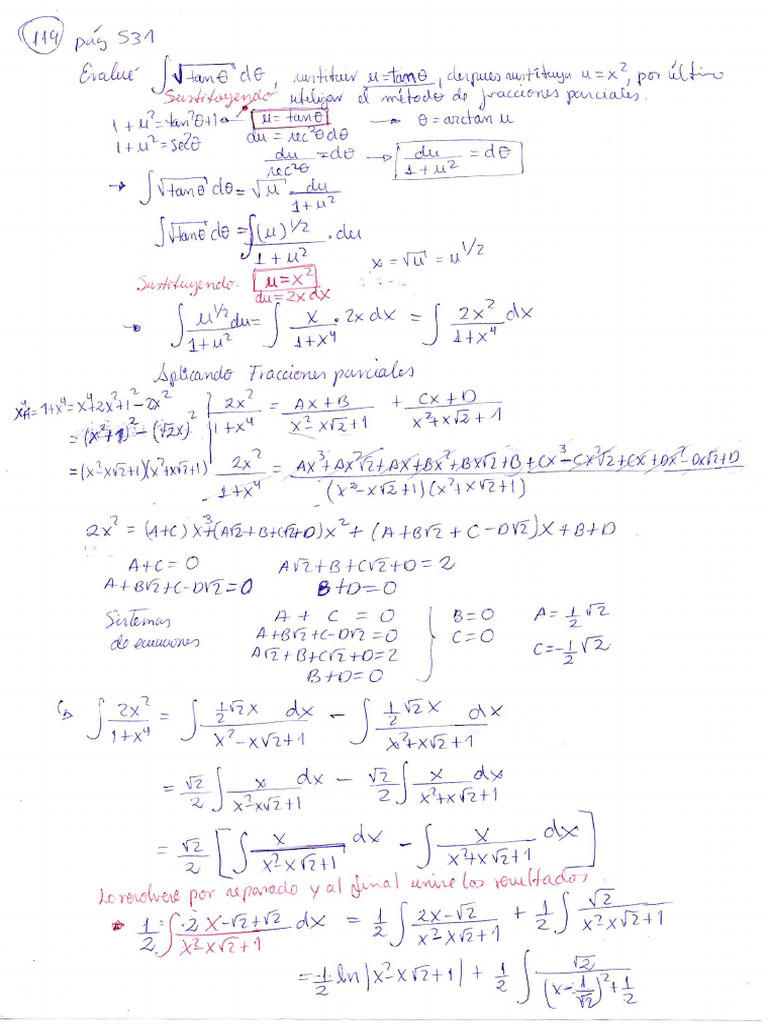 114 pág 531
Evalué ∫√tanθ dθ, sustituir u=tanθ, despues sustituya u=x², por último
Sustituyendo utilizar el método de fracciones parciales.
1+u²=tan²θ+1 u=tanθ → θ=arctan u
1+u²=sec²θ du=sec²θdθ
du/sec²θ=dθ → du/(1+u²)=dθ
→ ∫√tanθ dθ=√u · du/(1+u²)
∫√tanθ dθ=∫(u)^1/2/(1+u²) · du
x=√u=u^1/2
Sustituyendo. u=x²
du=2xdx
→ ∫u^1/2/(1+u²) du= ∫x/(1+x⁴) · 2x dx = ∫2x²/(1+x⁴) dx
Aplicando Fracciones parciales
1+x⁴=x⁴+2x²+1-2x² 2x²/(1+x⁴) = (Ax+B)/(x²-x√2+1) + (Cx+D)/(x²+x√2+1)
=(x²+1)²-(√2x)²
=(x²-x√2+1)(x²+x√2+1) 2x²/(1+x⁴) = (Ax³+Ax²√2+Ax+Bx²+Bx√2+B+Cx³-Cx²√2+Cx+Dx²-Dx√2+D)/((x²-x√2+1)(x²+x√2+1))
2x²=(A+C)x³+(A√2+B+C√2+D)x²+(A+B√2+C-D√2)x+B+D
A+C=0 A√2+B+C√2+D=2
A+B√2+C-D√2=0 B+D=0
Sistemas A + C = 0 B=0 A=1/2√2
de ecuaciones A+B√2+C-D√2=0 C=0 C=-1/2√2
A√2+B+C√2+D=2
B+D=0
↳ ∫2x²/(1+x⁴) = ∫(1/2√2x dx)/(x²-x√2+1) - ∫(1/2√2x dx)/(x²+x√2+1)
= √2/2∫x/(x²-x√2+1) dx - √2/2∫x/(x²+x√2+1) dx
= √2/2[∫x/(x²-x√2+1) dx - ∫x/(x²+x√2+1) dx]
Lo resolvere por separado y al final unire los resultados.
* 1/2∫(2x-√2+√2)/(x²-x√2+1) dx = 1/2∫(2x-√2)/(x²-x√2+1) + 1/2∫√2/(x²-x√2+1)
=1/2 ln|x²-x√2+1| + 1/2∫√2/((x-1/√2)²+1/2)